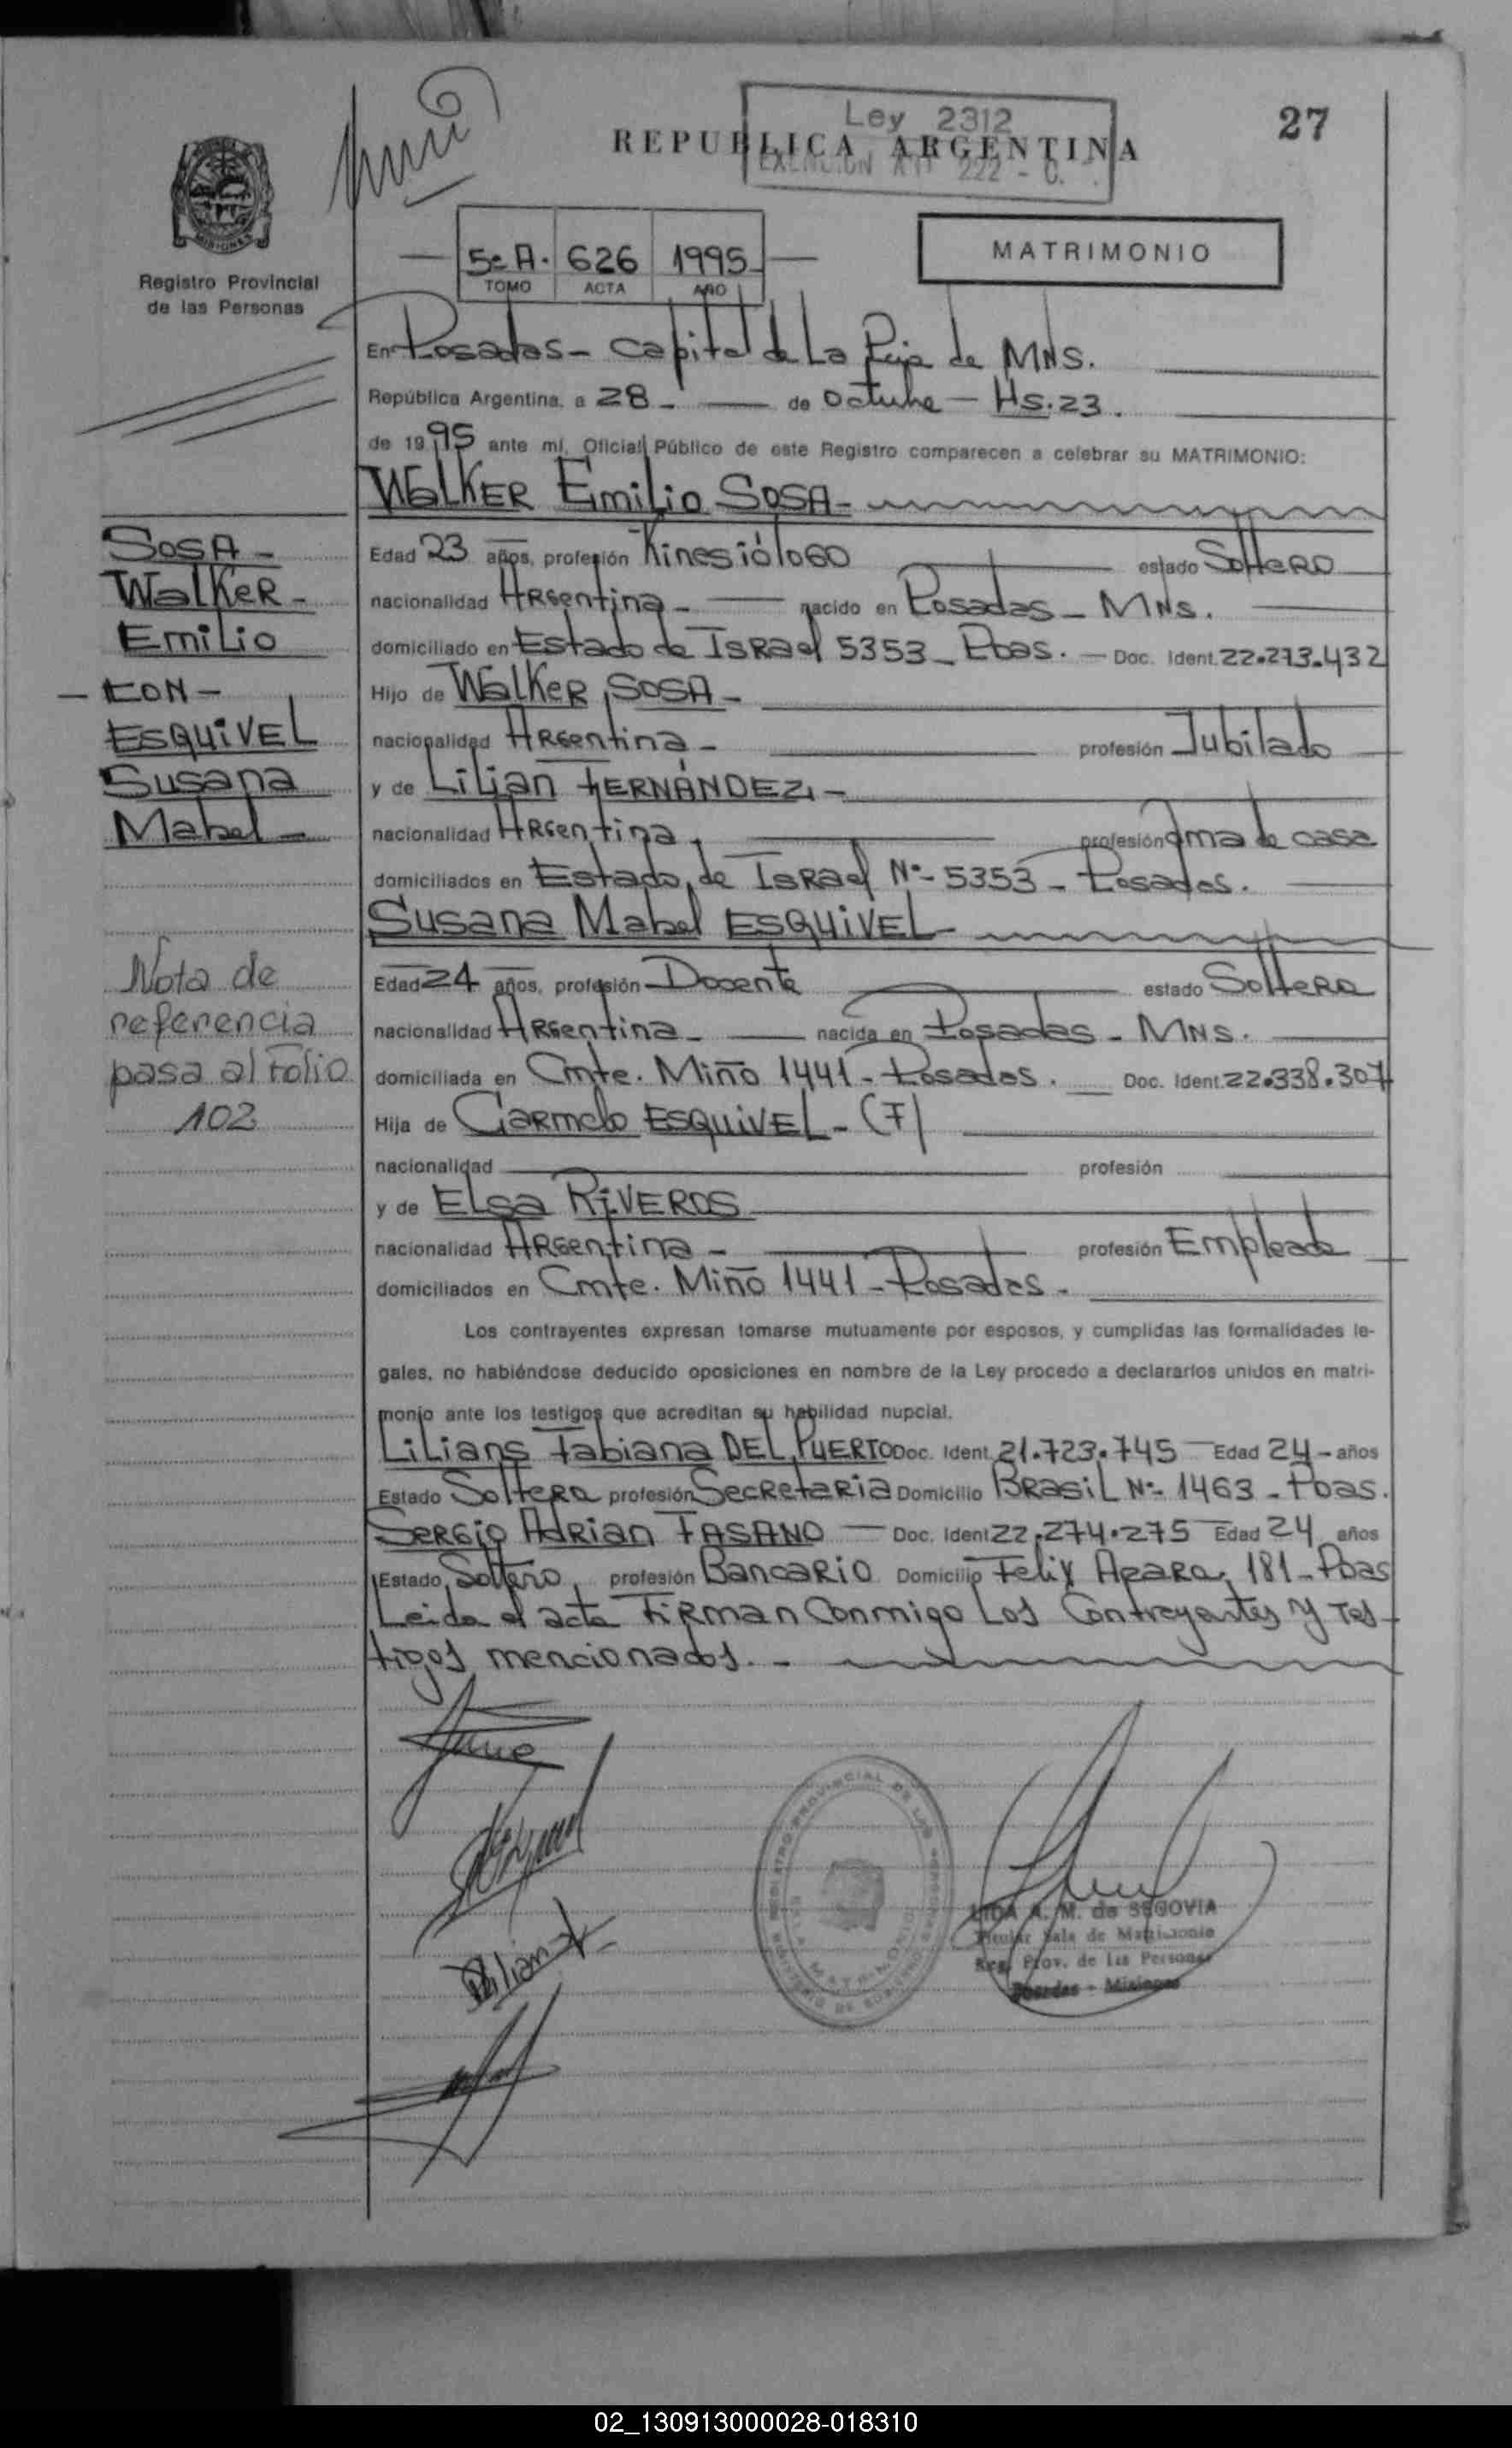 27
Ley 2312
REPUBLICA ARGENTINA
EXENCION ATT 222 - C.
MISIONES
Registro Provincial
de las Personas
5º A. 626 1995
TOMO ACTA AÑO
MATRIMONIO
En Posadas - capital de La Pcia de MNS.
República Argentina, a 28 - de octubre - Hs. 23.
de 1995 ante mí, Oficial Público de este Registro comparecen a celebrar su MATRIMONIO:
WALKER Emilio SOSA -
Edad 23 años, profesión Kinesiólogo estado Soltero
nacionalidad Argentina - nacido en Posadas - MNS.
domiciliado en Estado de Israel 5353 - Pdas. - Doc. Ident. 22.273.432
Hijo de WALKER SOSA -
nacionalidad Argentina - profesión Jubilado
y de Lilian FERNÁNDEZ -
nacionalidad Argentina. profesión Ama de casa
domiciliados en Estado de Israel Nº- 5353 - Posadas.
Susana Mabel ESQUIVEL -
Edad 24 años, profesión Docente estado Soltera
nacionalidad Argentina - nacida en Posadas - MNS.
domiciliada en Cmte. Miño 1441 - Posadas. Doc. Ident. 22.338.307
Hija de Carmelo ESQUIVEL - (F)
nacionalidad profesión
y de ELSA RIVEROS
nacionalidad Argentina - profesión Empleada
domiciliados en Cmte. Miño 1441 - Posadas -
Los contrayentes expresan tomarse mutuamente por esposos, y cumplidas las formalidades le-
gales, no habiéndose deducido oposiciones en nombre de la Ley procedo a declararlos unidos en matri-
monio ante los testigos que acreditan su habilidad nupcial.
Liliana Fabiana DEL PUERTO Doc. Ident. 21.723.745 Edad 24 - años
Estado Soltera profesión Secretaria Domicilio Brasil Nº- 1463 - Pdas.
Sergio Adrian FASANO - Doc. Ident 22.274.275 Edad 24 años
Estado Soltero profesión Bancario Domicilio Felix Azara 181 - Pdas
Leida el acta Firman Conmigo Los Contrayentes y Tes-
tigos mencionados. -
SOSA -
Walker -
Emilio
- CON -
ESQUIVEL
Susana
Mabel -
Nota de
referencia
pasa al Folio
102
LIDA A. M. de SEGOVIA
Titular Sala de Matrimonio
Reg. Prov. de las Personas
Posadas - Misiones
02_130913000028-018310